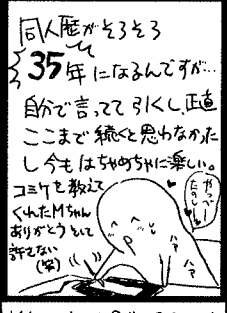 同人歴がそろそろ
35年になるんですが…
自分で言ってて引くし、正直
ここまで続くと思わなかった
し今もはちゃめちゃに楽しい。
コミケを教えて
くれたMちゃん
ありがとうそして
許さない
(笑)
やっべー
たのしー
ハァ
ハァ